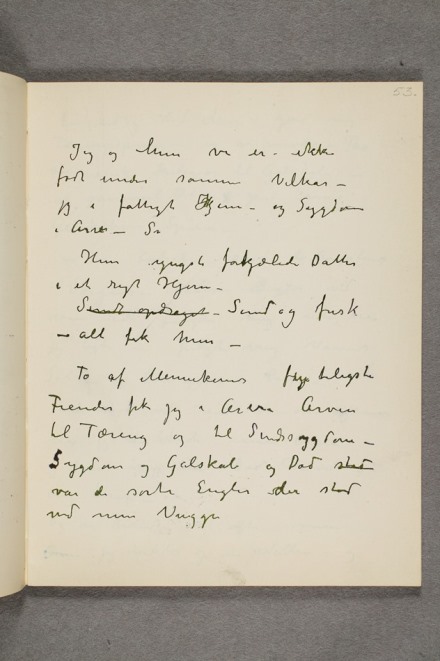 53.
Jeg og hun vi er – ikke
født under samme Vilkår –
jeg i fattigt Hjem – og Sygdom
i Arv – Så
Hun yngste forkjælede Datter
i et rigt Hjem –
Sundt opdraget – Sund og frisk
– alt fik hun –
To af Menneskenes frygteligste
Fiender fik jeg i Arven
til Tæring og til Sindssygdom –
Sygdom og Galskab og Død stod
var de sorte Engler der stod
ved min Vugge